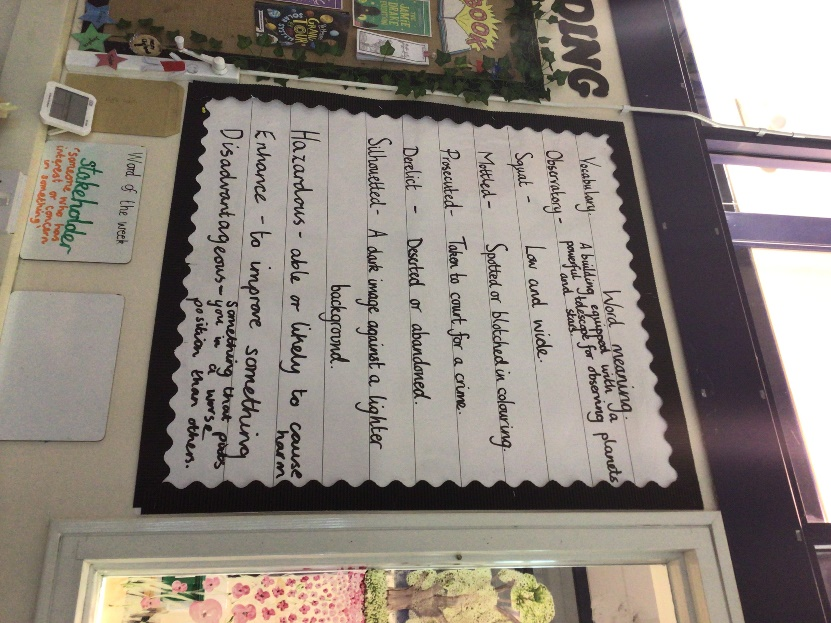 DING
BOOK
JAMES
GRAND
TOUR
Vocabulary. Word meaning.
Observatory - A building equipped with a
powerful telescope for observing planets
and stars.
Squat - Low and wide.
Mottled - Spotted or blotched in colouring.
Prosecuted - Taken to court for a crime.
Derelict - Deserted or abandoned.
Silhouetted - A dark image against a lighter
background.
Hazardous - able or likely to cause
harm
Enhance - to improve something
Disadvantageous - something that puts
you in a worse
position than others.
Word of the week
stakeholder
"someone who has
interest or concern
in something"